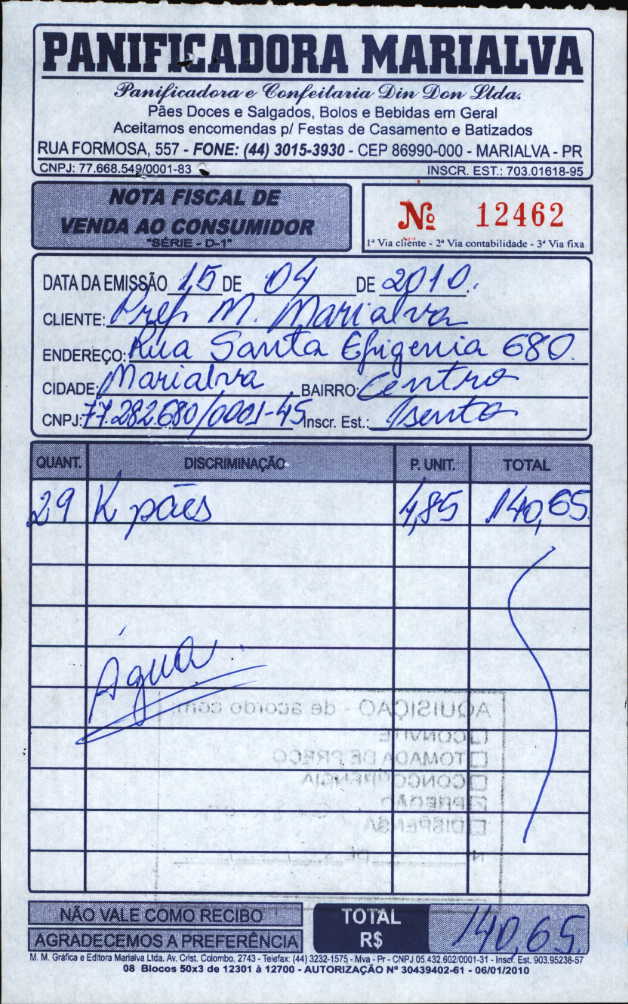 PANIFICADORA MARIALVA
Panificadora e Confeitaria Din Don Ltda.
Pães Doces e Salgados, Bolos e Bebidas em Geral
Aceitamos encomendas p/ Festas de Casamento e Batizados
RUA FORMOSA, 557 - FONE: (44) 3015-3930 - CEP 86990-000 - MARIALVA - PR
CNPJ: 77.668.549/0001-83 INSCR. EST.: 703.01618-95
NOTA FISCAL DE
VENDA AO CONSUMIDOR
"SÉRIE - D-1"
Nº 12462
1ª Via cliente - 2ª Via contabilidade - 3ª Via fixa
DATA DA EMISSÃO 15 DE 04 DE 2010.
CLIENTE: Pref. M. Marialva
ENDEREÇO: Rua Santa Efigenia 680.
CIDADE: Marialva BAIRRO: Centro
CNPJ: 77.282.680/0001-45 Inscr. Est.: Isento
QUANT. DISCRIMINAÇÃO P. UNIT. TOTAL
29 K pães 4,85 140,65
Água.
AQUISIÇÃO - de acordo com:
CONVITE
TOMADA DE PREÇO
CONCORRÊNCIA
PREGÃO
DISPENSA
Nº DE
NÃO VALE COMO RECIBO
AGRADECEMOS A PREFERÊNCIA
TOTAL R$ 140,65.
M. M. Gráfica e Editora Marialva Ltda. Av. Crist. Colombo, 2743 - Telefax: (44) 3232-1575 - Mva - Pr - CNPJ 05.432.602/0001-31 - Inscr. Est. 903.95238-57
08 Blocos 50x3 de 12301 à 12700 - AUTORIZAÇÃO Nº 30439402-61 - 06/01/2010